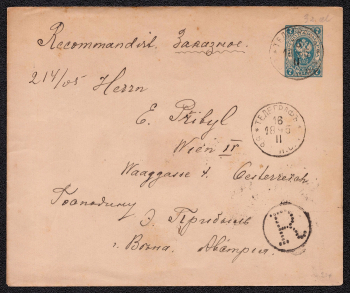 Recommandirt. Заказное.
214/05 Herrn
E. Přibyl
Wien IV
Waaggasse 1. Oesterreich
Господину
Э. Прибыль
г. Вѣна. Австрія.
ТЕЛЕГРАФЪ
16
1895
II
R
7 7